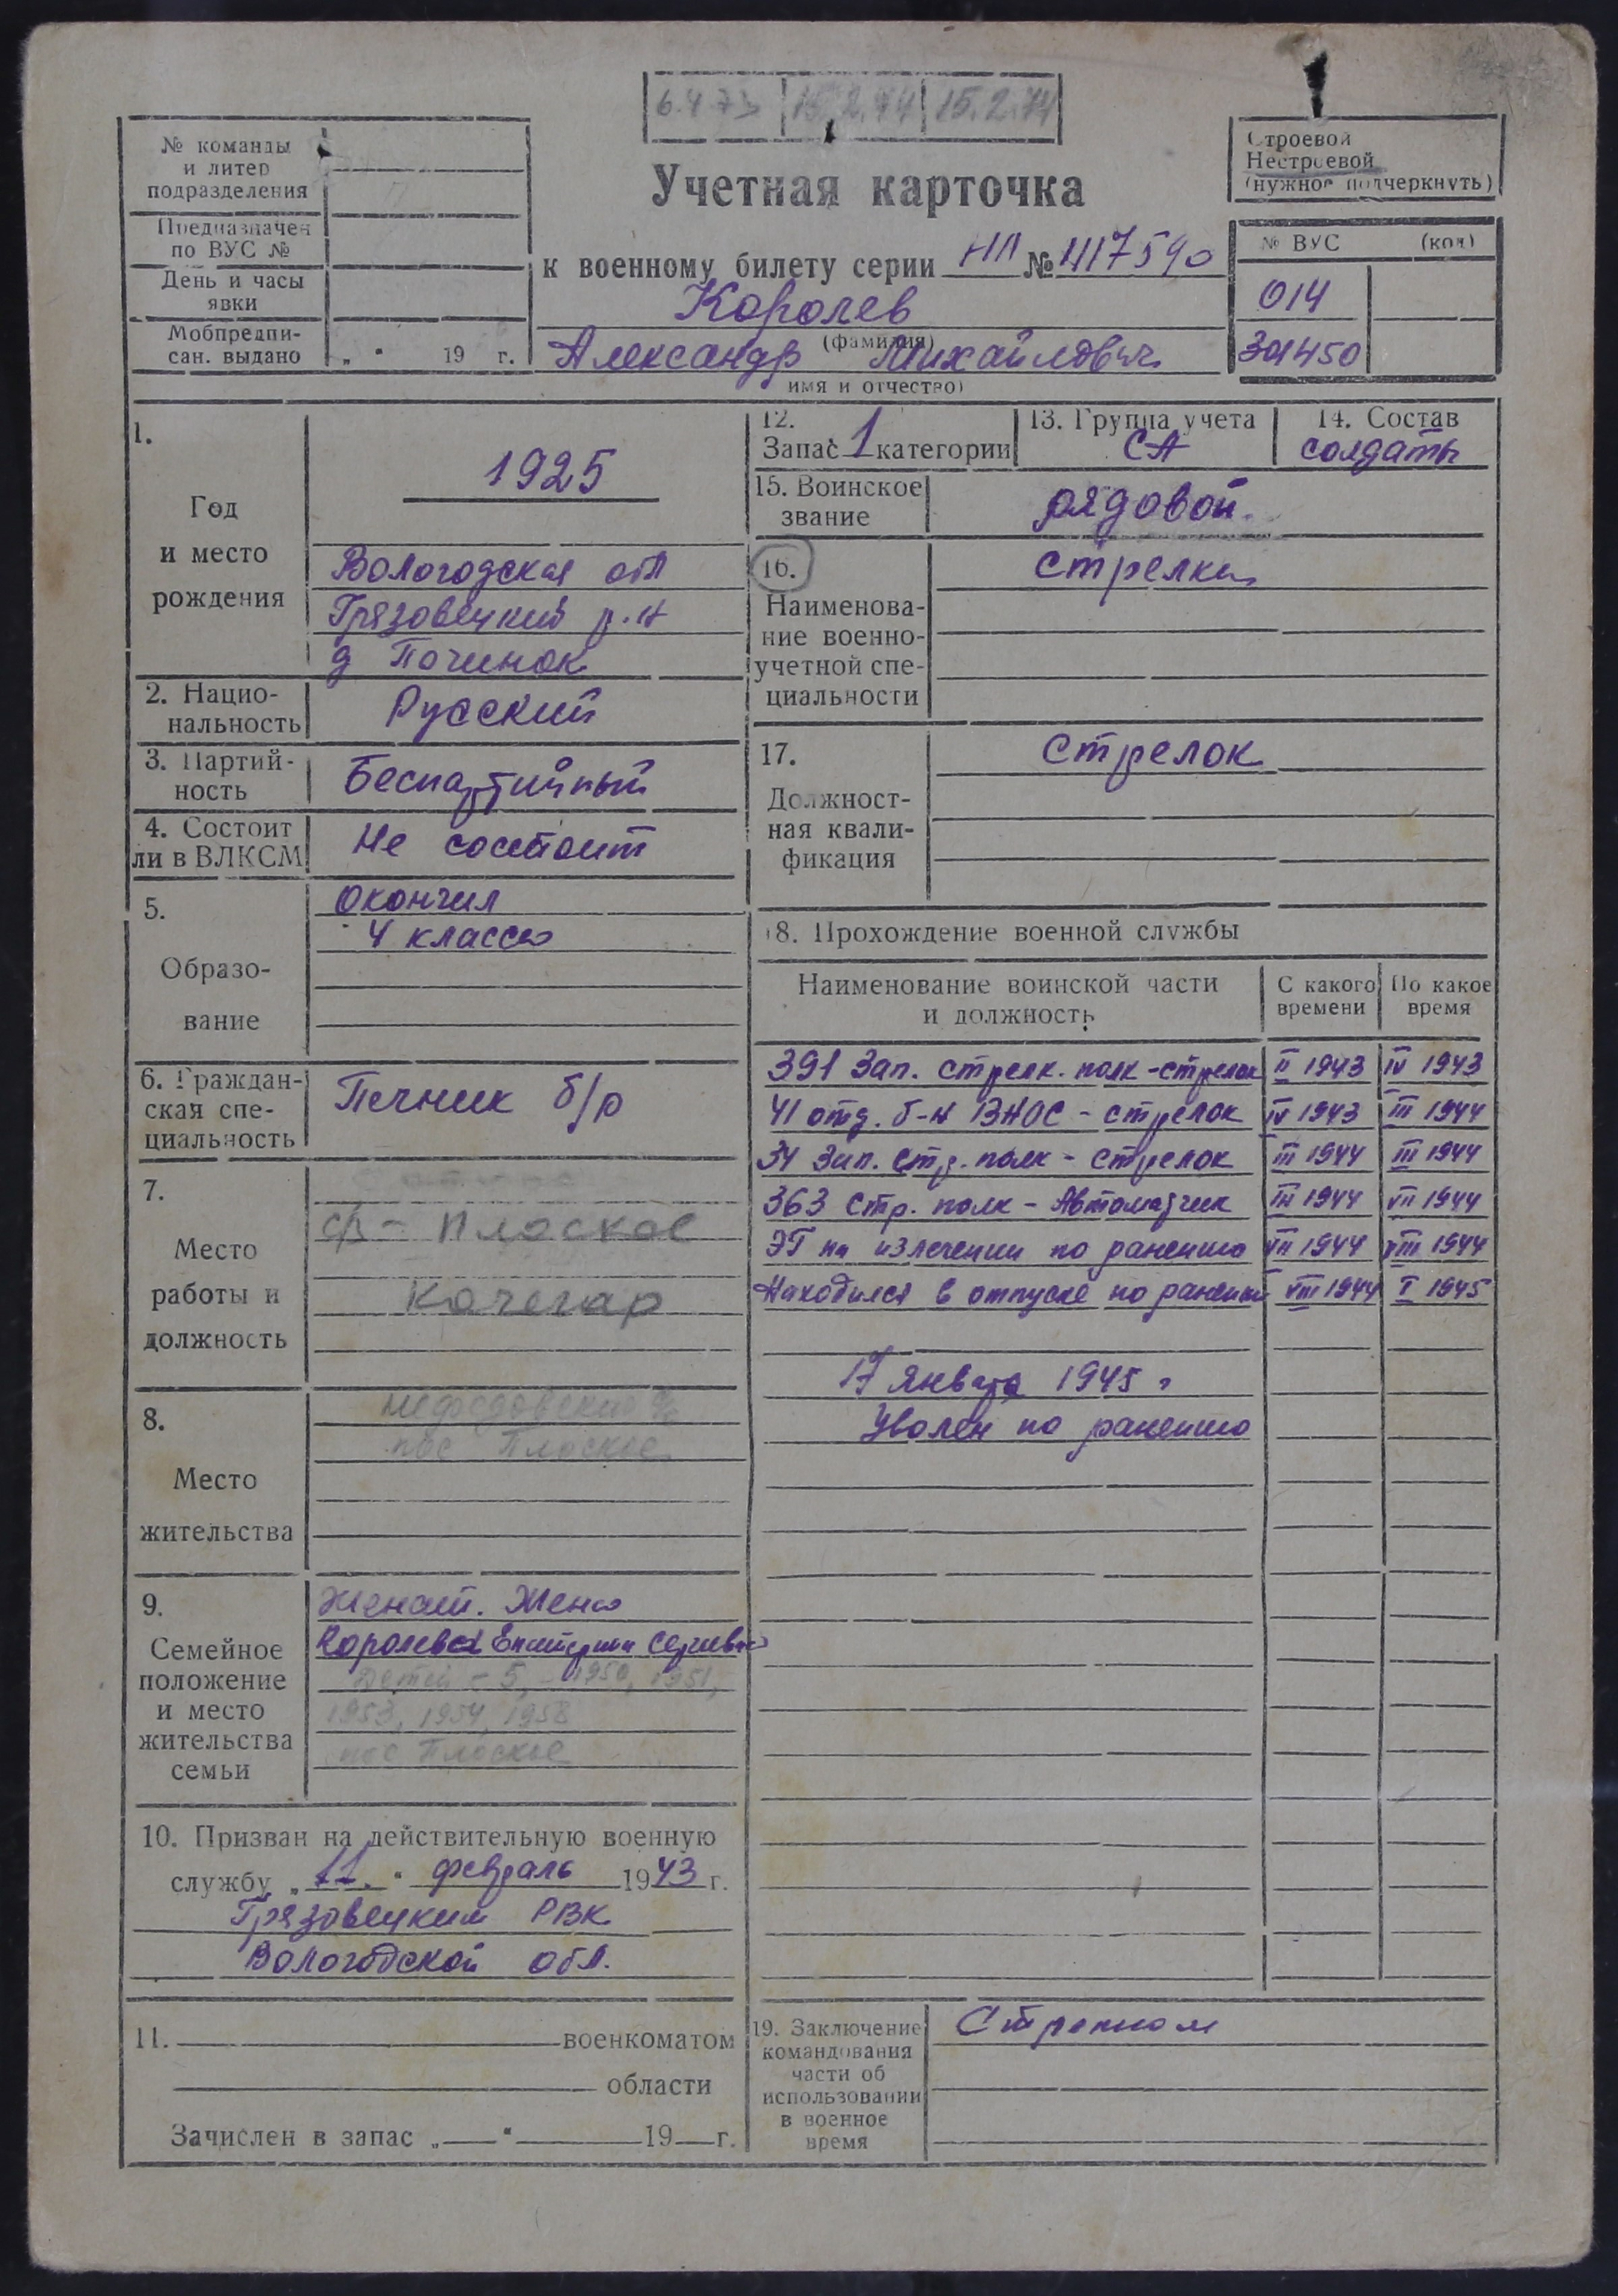 6.4.73 15.2.74 15.2.74
№ команды
и литер
подразделения
Предназначен
по ВУС №
День и часы
явки
Мобпредпи-
сан. выдано „ " 19 г.
Учетная карточка
к военному билету серии НЛ № 1117590
Королев
(фамилия)
Александр Михайлович
имя и отчество)
Строевой
Нестроевой
(нужное подчеркнуть)
№ ВУС (код)
014
301450
1.
Год
и место
рождения
1925
Вологодская обл
Грязовецкий р.н
д Починок
2. Нацио-
нальность
Русский
3. Партий-
ность
Беспартийный
4. Состоит
ли в ВЛКСМ
Не состоит
5.
Образо-
вание
Окончил
4 класса
6. Граждан-
ская спе-
циальность
Печник б/р
7.
Место
работы и
должность
Плоское
Кочегар
8.
Место
жительства
пос Плоское
9.
Семейное
положение
и место
жительства
семьи
Женат. Жена
Королева Екатерина
Детей - 5, 1950, 1951,
1953, 1954, 1958
пос Плоское
10. Призван на действительную военную
службу „11." февраль 1943 г.
Грязовецким РВК
Вологодской обл.
11. военкоматом
области
Зачислен в запас „ " 19 г.
12.
Запас 1 категории
13. Группа учета
СА
14. Состав
солдаты
15. Воинское
звание
рядовой
16.
Наименова-
ние военно-
учетной спе-
циальности
Стрелки
17.
Должност-
ная квали-
фикация
Стрелок
18. Прохождение военной службы
Наименование воинской части
и должность
С какого
времени
По какое
время
391 Зап. стрелк. полк - стрелок II 1943 IV 1943
41 отд. б-н ВНОС - стрелок IV 1943 III 1944
34 Зап. стр. полк - стрелок III 1944 III 1944
363 стр. полк - Автоматчик III 1944 VII 1944
ЭГ на излечении по ранению VII 1944 VIII 1944
Находился в отпуске по ранению VIII 1944 I 1945
17 января 1945 г
Уволен по ранению
19. Заключение
командования
части об
использовании
в военное
время
Стрелком